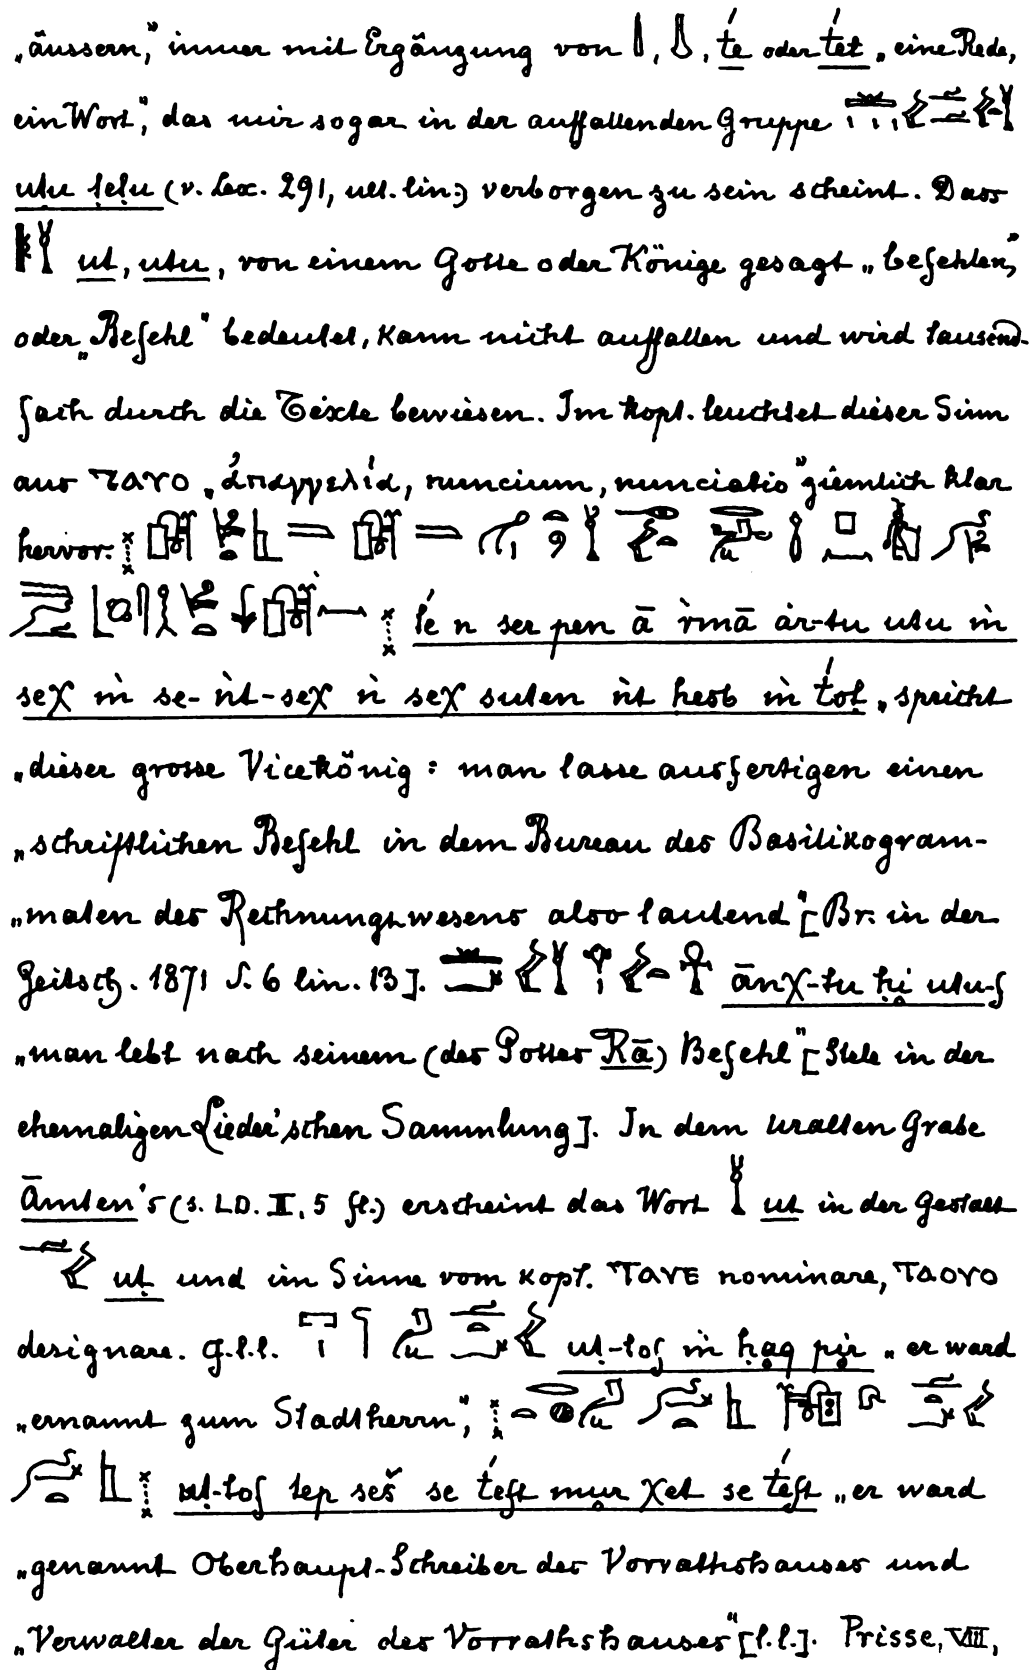 „äussern,” immer mit Ergänzung von , , t́e oder t́et „eine Rede,
ein Wort”, das mir sogar in der auffallenden Gruppe
utu ṭeṭu (v. Lex. 291, ult. lin.) verborgen zu sein scheint. Dass
ut, utu, von einem Gotte oder Könige gesagt „befehlen,”
oder „Befehl” bedeutet, kann nicht auffallen und wird tausend-
fach durch die Texte bewiesen. Im kopt. leuchtet dieser Sinn
aus ⲧⲁⲩⲟ „ἀπαγγελία, nuncium, nunciatio” ziemlich klar
hervor:
t́e n ser pen ā r̀mā ȧr-tu utu m̀
seχ m̀ se-ǹt-seχ ǹ seχ suten ǹt ḥesb m̀ t́oṭ „spricht
„dieser grosse Vicekönig: man lasse ausfertigen einen
„schriftlichen Befehl in dem Bureau des Basilikogram-
„maten des Rechnungswesens also lautend” [Br. in der
Zeitsch. 1871 S. 6 lin. 13]. ānχ-tu ḥi utu-f
„man lebt nach seinem (des Gottes Rā) Befehl” [Stele in der
ehemaligen Lieder'schen Sammlung]. In dem uralten Grabe
Āmten's (s. LD. II, 5 fl.) erscheint das Wort ut in der Gestalt
uṭ und im Sinne vom kopt. ⲧⲁⲩⲉ nominare, ⲧⲁⲟⲩⲟ
designare. q.l.l. uṭ-tof m̀ ḥaq pir „er ward
„ernannt zum Stadtherrn”,
uṭ-tof tep seš se t́eft mur χet se t́eft „er ward
„genannt Oberhaupt-Schreiber des Vorrathshauses und
„Verwalter der Güter des Vorrathshauses” [l.l.]. Prisse, VIII,